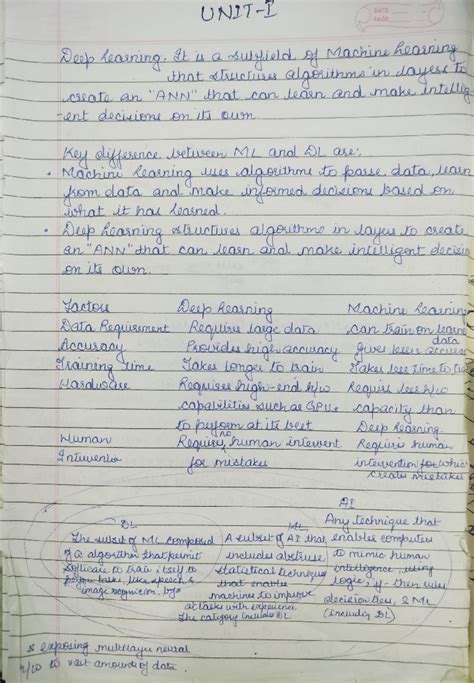 UNIT-I
DATE
PAGE
Deep Learning. It is a subfield of Machine Learning
that structures algorithms in layers to
create an "ANN" that can learn and make intellig-
ent decisions on its own.
Key difference between ML and DL are:
• Machine Learning uses algorithms to parse data, learn
from data and make informed decisions based on
what it has learned.
• Deep Learning structures algorithms in layer to create
an "ANN" that can learn and make intelligent decisi
on its own.
Factors Deep Learning Machine Learning
Data Requirement Requires large data can train on learn data
Accuracy Provides high accuracy gives less accuracy
Training Time Takes longer to train Takes less time to
Hardware Requires high-end h/w Require less h/w
capabilities such as GPUs capacity than
to perform at its best Deep Learning.
Human Requires no human intervent Requires human
for mistakes intervention for which
creates mistakes
AI
DL ML Any technique that
The subset of ML composed A subset of AI that enables computers
of a algorithm that permit includes abstruse to mimic human
software to train itself to statistical technique intelligence, using
perform tasks, like speech & that enables logic, if-then rules
image recognition, by machines to improve decision trees, & ML
at tasks with experience (including DL)
The category includes DL
& exposing multilayer neural
n/w to vast amounts of data.